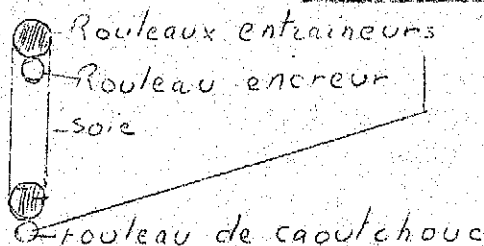 Rouleaux entraineurs
Rouleau encreur
soie
rouleau de caoutchouc